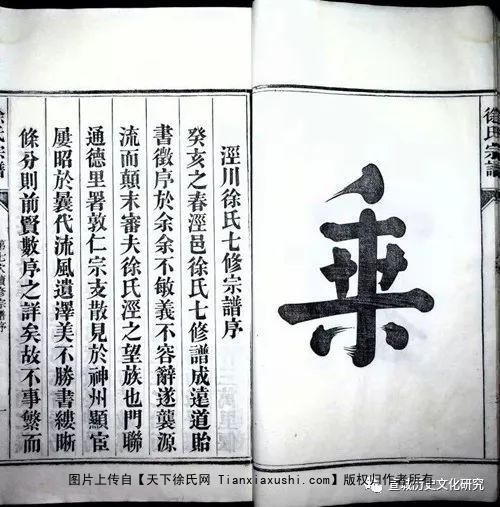 徐氏宗譜
乘
涇川徐氏七修宗譜序
癸亥之春涇邑徐氏七修譜成遠道貽
書徵序於余余不敏義不容辭遂襲源
流而顛末審夫徐氏涇之望族也門聯
通德里署敦仁宗支散見於神州顯宦
屢昭於曩代流風遺澤美不勝書縷晰
條分則前賢數序之詳矣故不事繁而
徐氏宗譜
第七次續修宗譜序
图片上传自【天下徐氏网 Tianxiaxushi.com】版权归作者所有
宣城历史文化研究